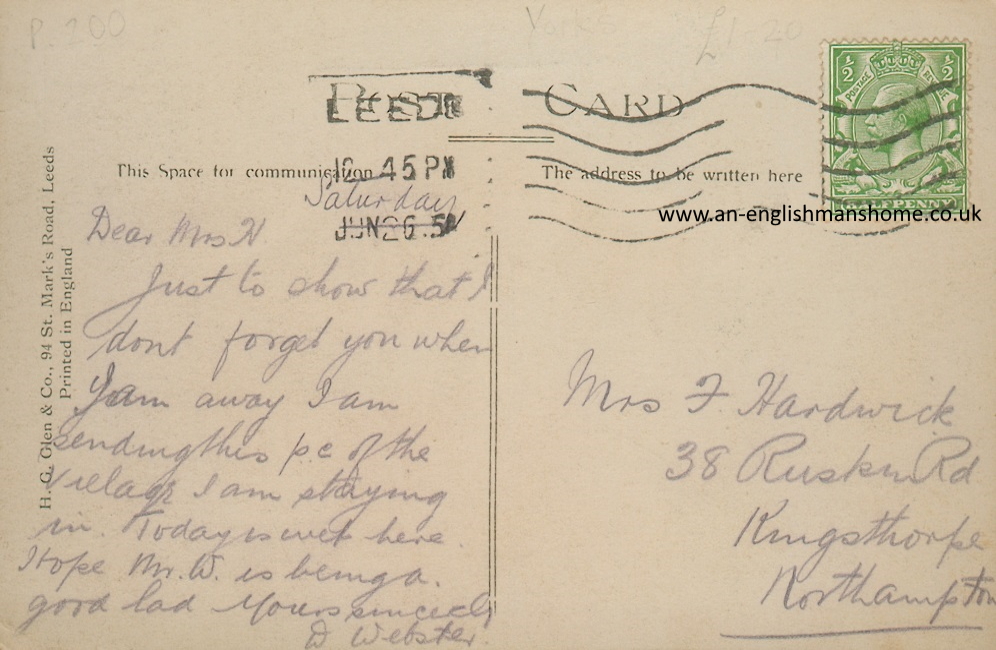 P. 200
Yorks
£1-20
POST CARD
LEEDS
10 45 PM
JUN 26
This Space for communication
The address to be written here
½ ½
POSTAGE
HALFPENNY
www.an-englishmanshome.co.uk
H. G. Glen & Co., 94 St. Mark's Road, Leeds
Printed in England
Saturday
Dear Mrs H
Just to show that I
dont forget you when
I am away I am
sending this pc of the
village I am staying
in. Today is wet here.
Hope Mr. W. is being a
good lad Yours sincerely
D Webster.
Mrs F. Hardwick
38 Ruskin Rd
Kingsthorpe
Northampton